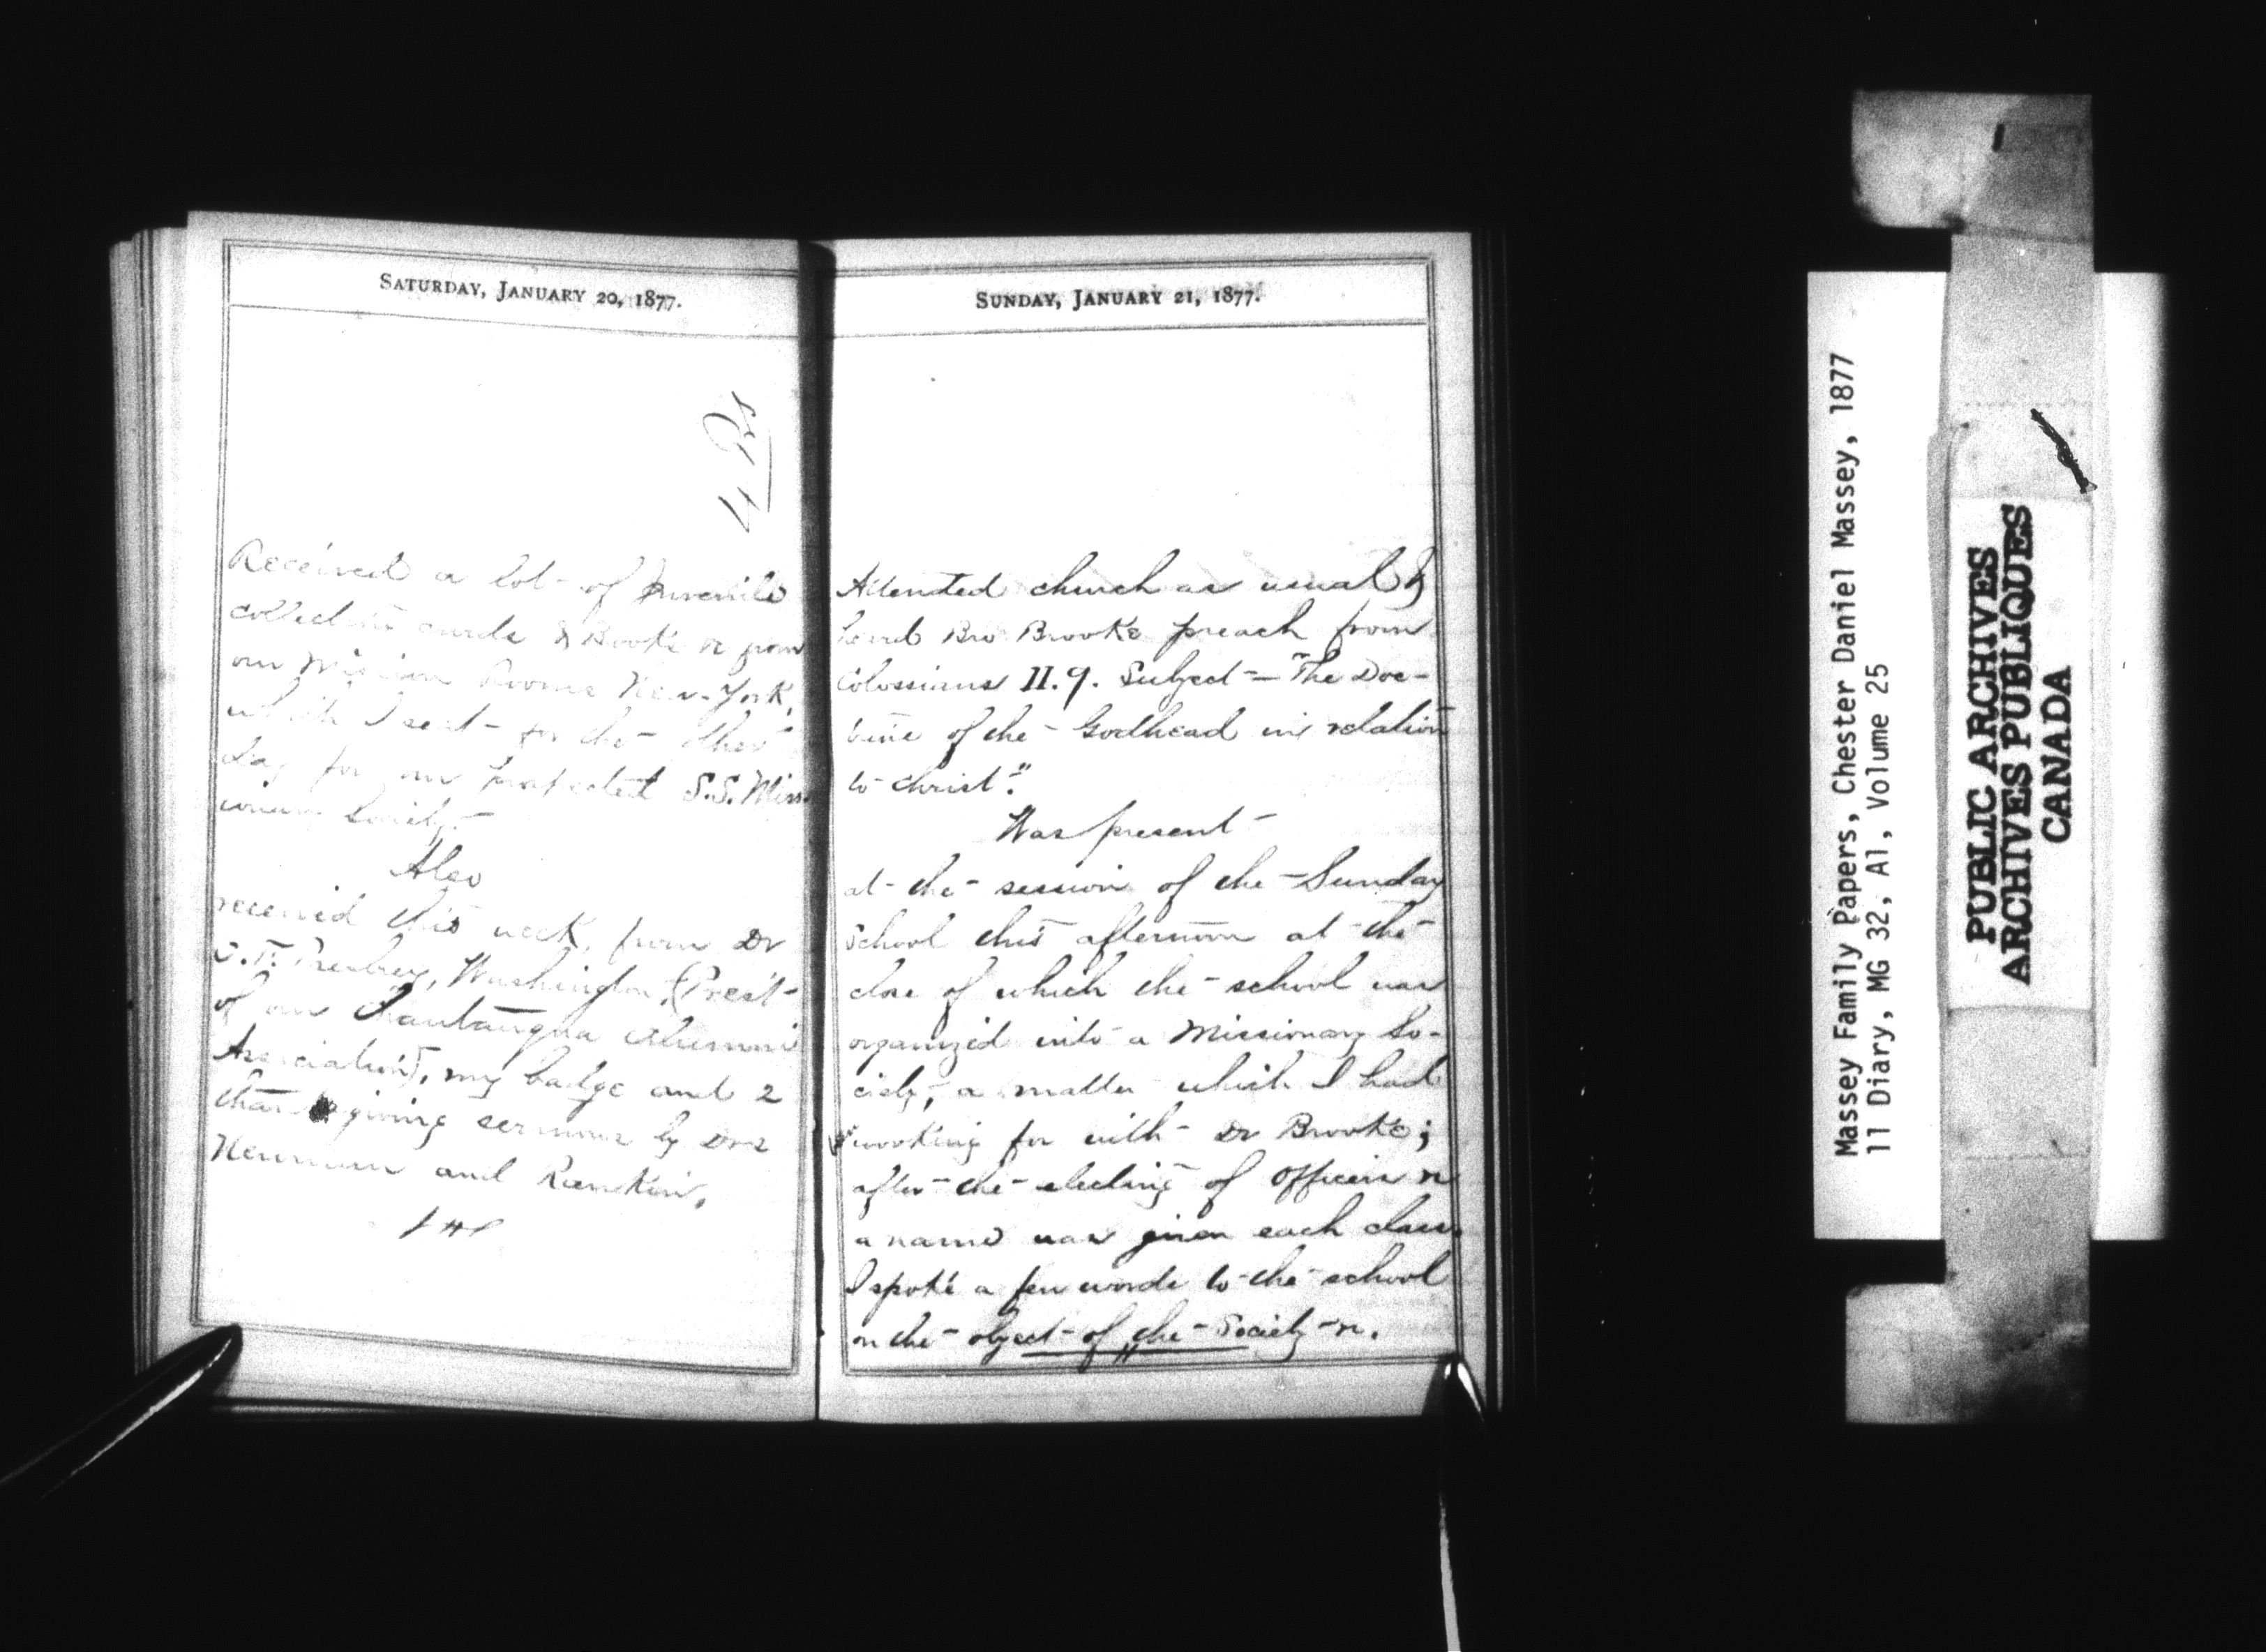 SATURDAY, JANUARY 20, 1877.
Received a lot of Juvenile
collecting cards & Books &c from
our Mission Rooms New-York,
which I sent for the other
day for our projected S.S. Miss-
ionary Society.
Also
received this week, from Dr
Washington, (Prest
of our Chautauqua Alumni
Association), my badge and 2
thanksgiving sermons by Drs
Newman and Rankin,
SUNDAY, JANUARY 21, 1877.
Attented church as usual &
heard Bro Brooks preach from
Colossians II.9. Subject — "The Doc-
trine of the Godhead in relation
to Christ."
Was present
at the session of the Sunday
School this afternoon at the
close of which the school was
organized into a Missionary So-
ciety, a matter which I had
working for with Dr Brooks;
after the electing of officers &c
a name was given each class.
I spoke a few words to the school
on the object of the Society &c.
Massey Family Papers, Chester Daniel Massey, 1877
11 Diary, MG 32, A1, Volume 25
PUBLIC ARCHIVES
ARCHIVES PUBLIQUES
CANADA